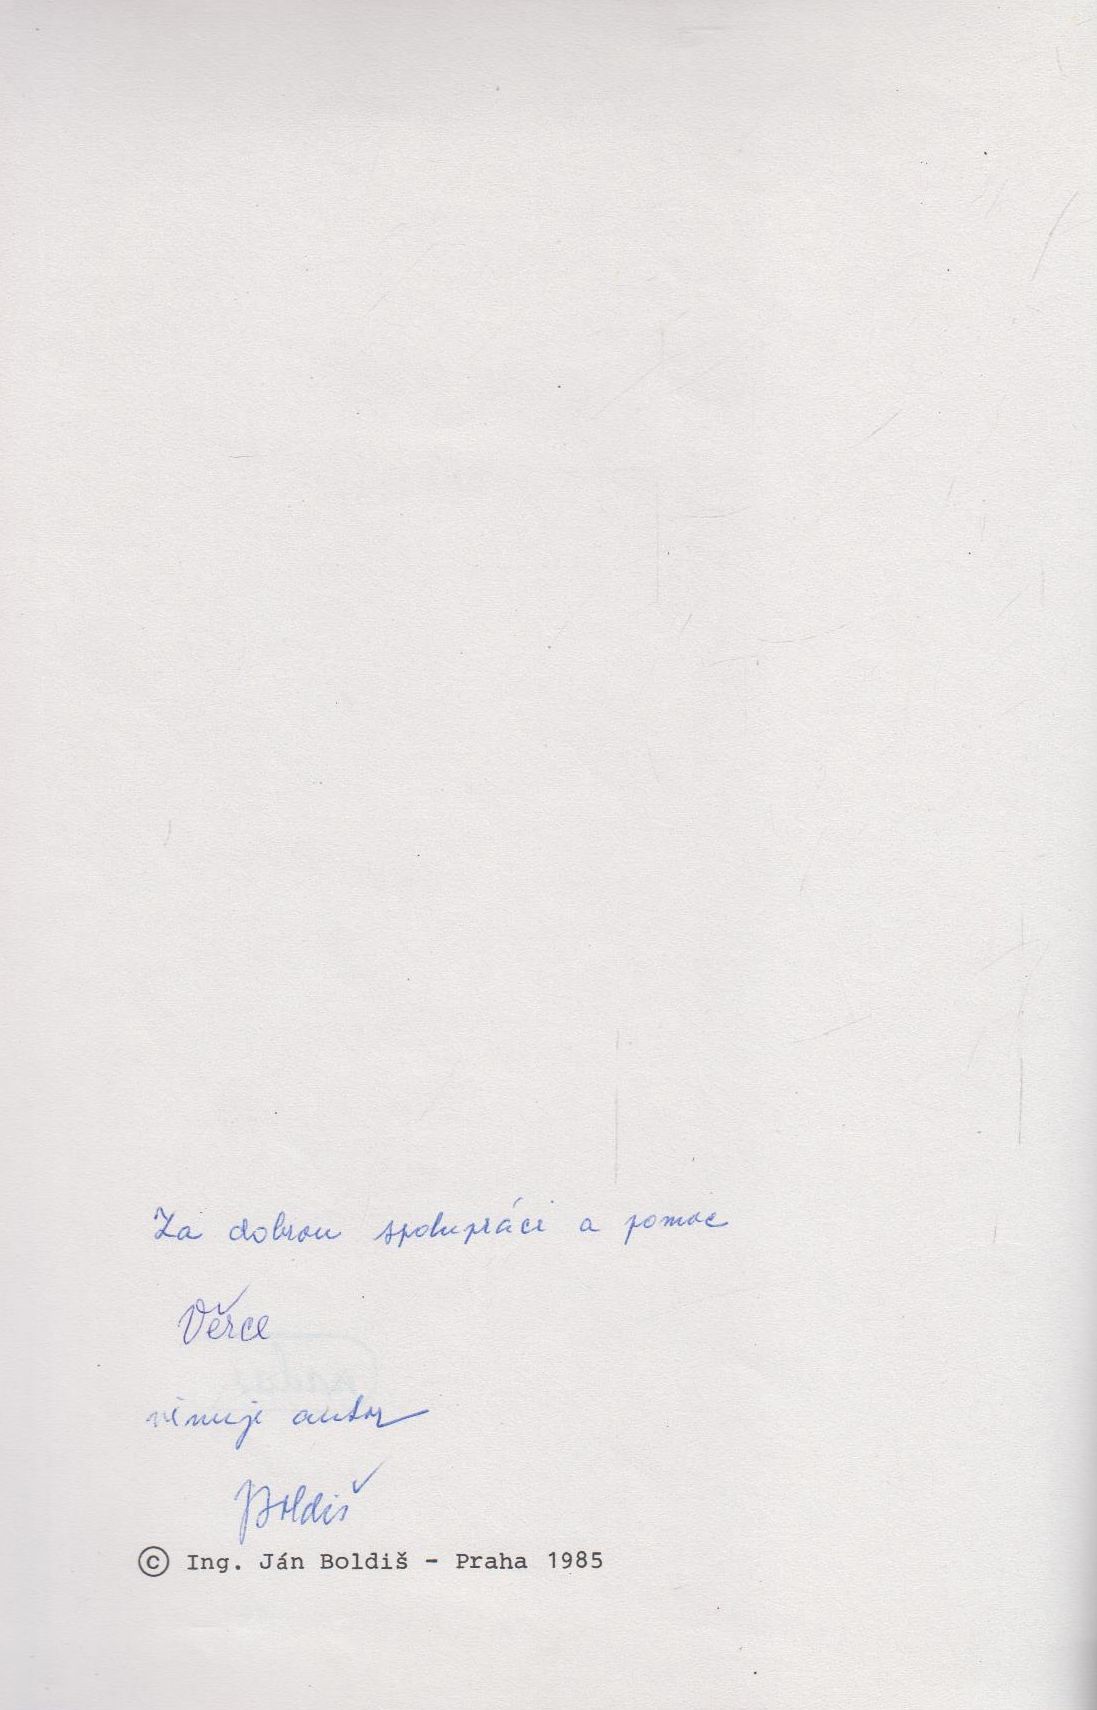 Za dobrou spolupráci a pomoc
Věrce
věnuje autor
Boldiš
© Ing. Ján Boldiš - Praha 1985